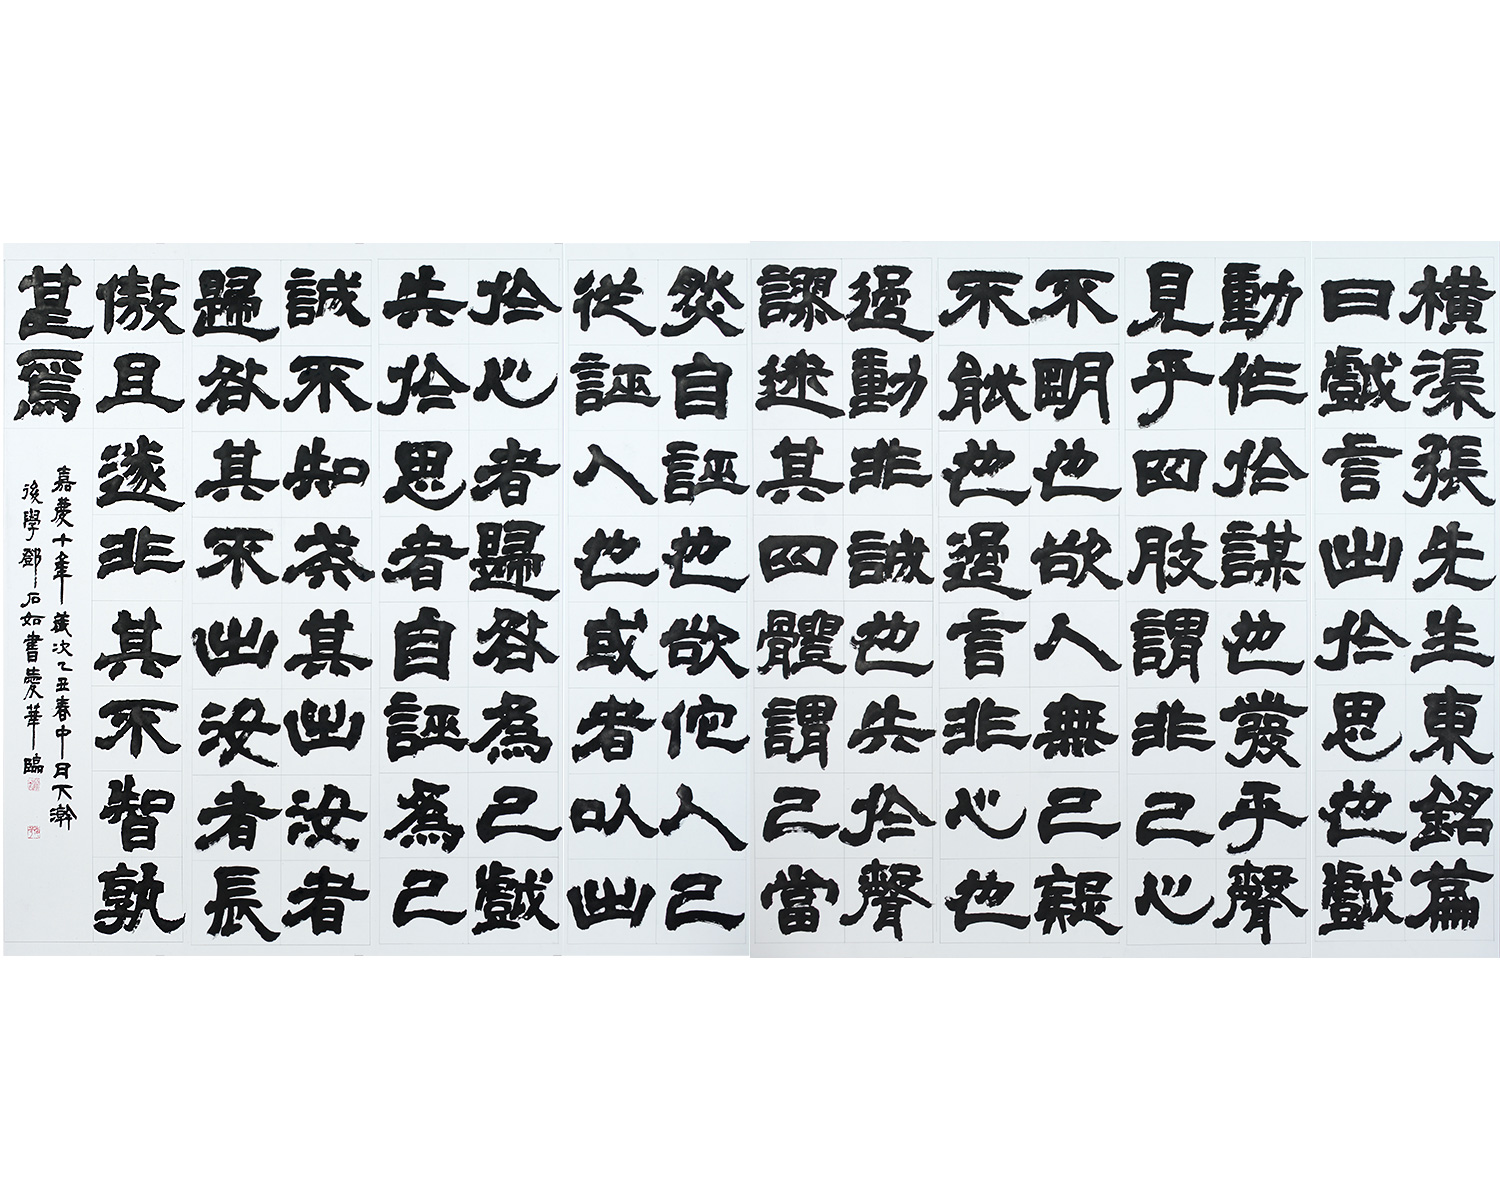 橫渠張先生東銘篇
曰戲言出於思也戲
動作於謀也發乎聲
見乎四肢謂非己心
不明也欲人無己疑
不能也過言非心也
過動非誠也失於聲
謬迷其四體謂己當
然自誣也欲佗人己
從誣人也或者以出
於心者歸咎為己戲
失於思者自誣為己
誠不知戒其出汝者
歸咎其不出汝者長
傲且遂非其不智孰
甚焉
嘉慶十年歲次乙丑春中月下澣
後學鄧石如書慶華臨